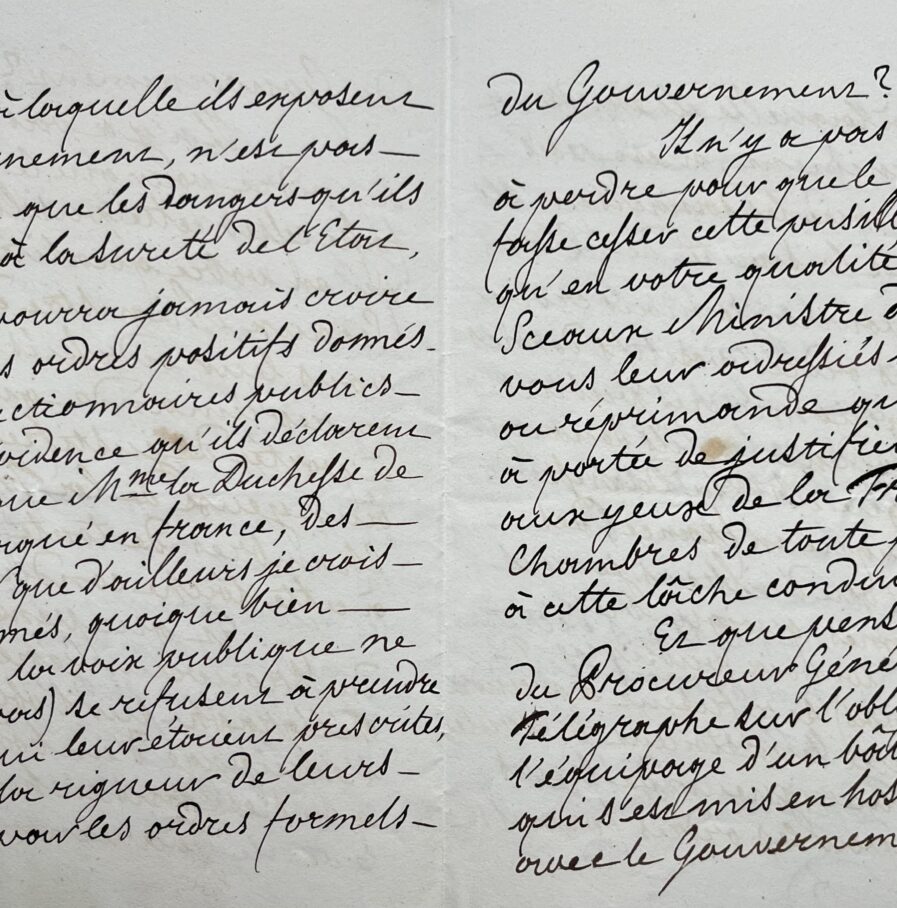 à laquelle ils exposent
nement, n'est pas —
que les Dangers qu'ils
à la sureté de l'Etat,
pourra jamais croire
s ordres positifs donnés —
ctionnaires publics —
vidence qu'ils déclarent
que Mme la Duchesse de
rqué en france, des —
que d'ailleurs je crois —
més, quoique bien —
la voix publique ne
pas) se refusent à prendre
ui leur étoient prescrites,
la rigueur de leurs —
voir les ordres formels —
du Gouvernement ?
Il n'y a pas
à perdre pour que le
fasse cesser cette pusill
qu'en votre qualité
Sceaux Ministre d
vous leur adressiés
ou réprimande qu
à portée de justifier
aux yeux de la Fr
Chambres de toute p
à cette lâche condui
Et que pens
du Procureur Géné
Télégraphe sur l'obl
l'équipage d'un bât
qui s'est mis en hos
avec le Gouvernem